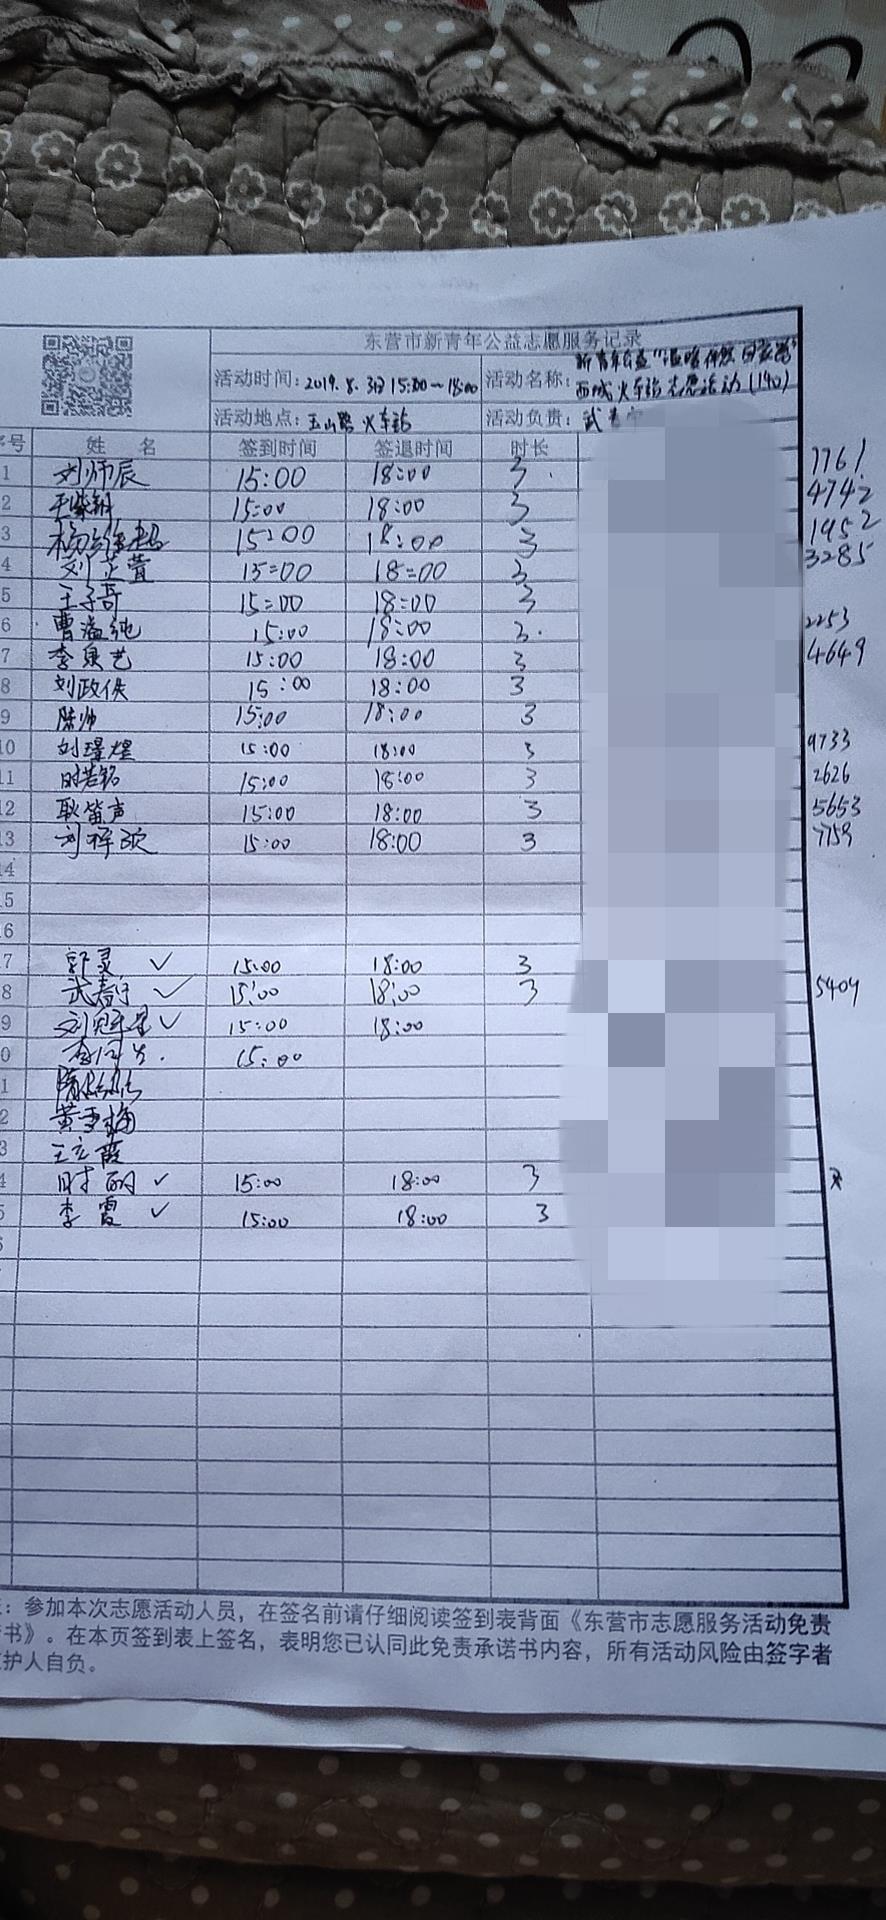 东营市新青年公益志愿服务记录
活动时间: 2019.8.3日 15:00~18:00 活动名称: 新青年公益"温暖 回家路"
西城火车站志愿活动(190)
活动地点: 玉山路 火车站 活动负责: 武
序号 姓 名 签到时间 签退时间 时长
1 刘师辰 15:00 18:00 3 7761
2 王紫钢 15:00 18:00 3 4742
3 15:00 18:00 3 1952
4 刘芷萱 15:00 18:00 3 3285
5 王子哥 15:00 18:00 3
6 曹溢纯 15:00 18:00 3 2253
7 李奠艺 15:00 18:00 3 4649
8 刘政佚 15:00 18:00 3
9 陈帅 15:00 18:00 3
10 刘瑾煜 15:00 18:00 3 9733
11 时若铭 15:00 18:00 3 2626
12 耿笛声 15:00 18:00 3 5653
13 刘梓 15:00 18:00 3 7759
14
15
16
7 郭灵 ✓ 15:00 18:00 3
8 武春宁 ✓ 15:00 18:00 3 5404
9 刘 ✓ 15:00 18:00
0 15:00
1 隋
2 黄雪梅
3 王立霞
4 时丽 ✓ 15:00 18:00 3
5 李霞 ✓ 15:00 18:00 3
6
: 参加本次志愿活动人员，在签名前请仔细阅读签到表背面《东营市志愿服务活动免责
书》。在本页签到表上签名，表明您已认同此免责承诺书内容，所有活动风险由签字者
护人自负。